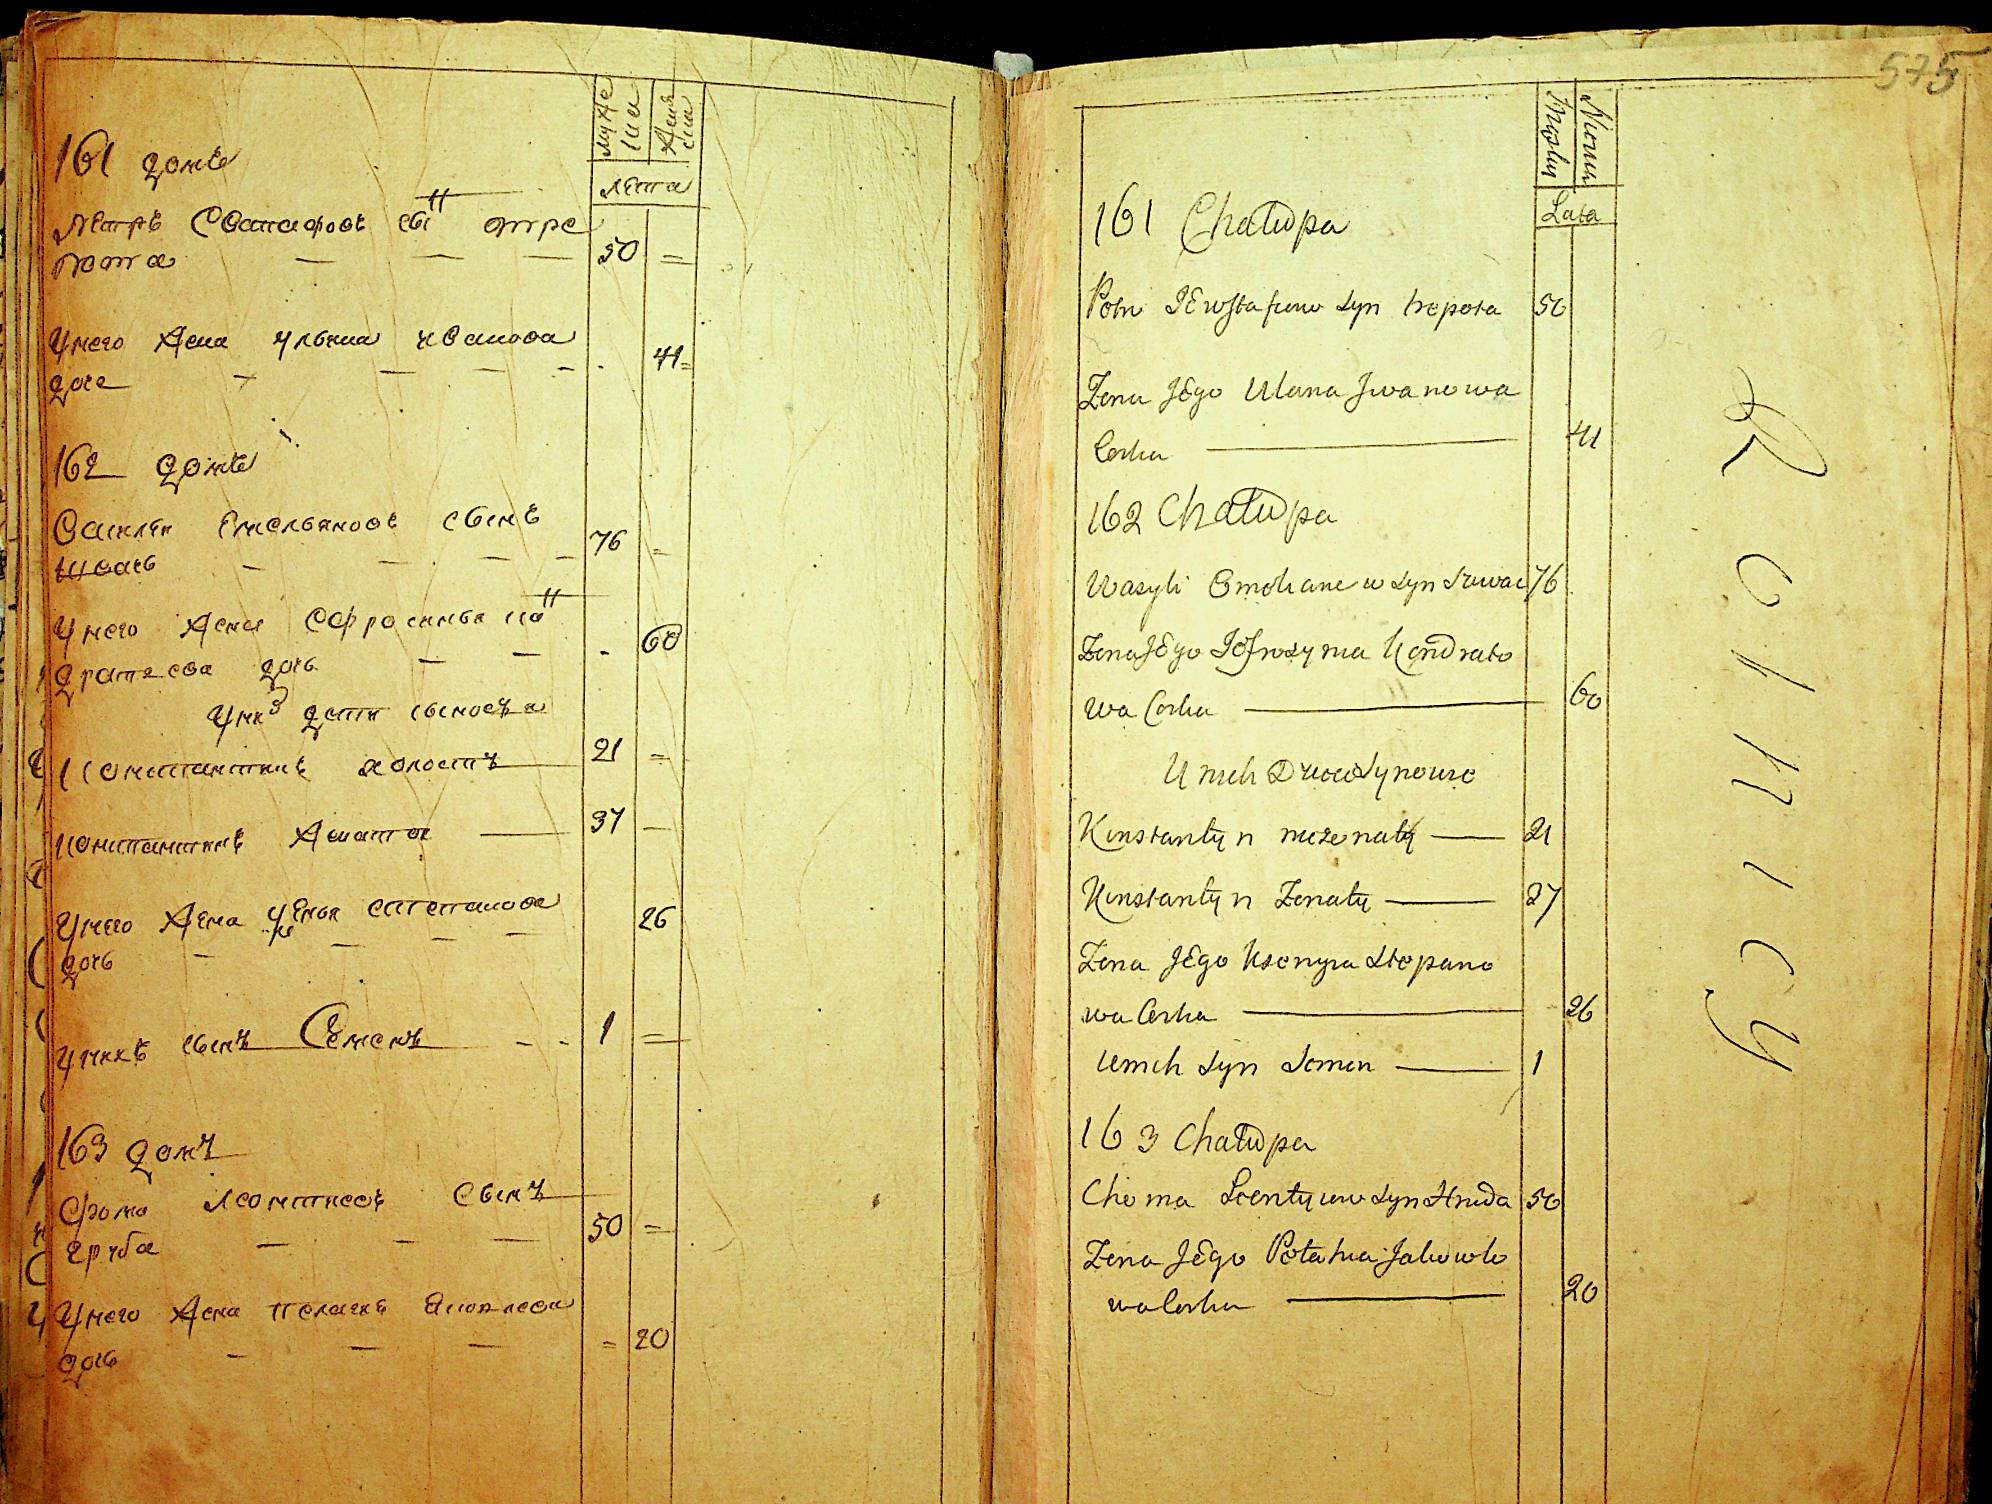 муже
ска
женс
ска
лета
161 домъ
Петръ Остафовъ сы отре
пота
50
У него жена Ульяна Иванова
дочь
41
162 домъ
Василий Емельяновъ сынъ
швачь
76
У него жена Ефросинья Кон
дратева дочь
60
У них дети сыновья
Константинъ холостъ
21
Константинъ женатой
37
У него жена Степанова
дочь
26
У нихъ сынъ Семенъ
1
163 домъ
Фома Леонтиевъ сынъ
груба
50
У него жена Пелагея Яковлева
дочь
20
575
Męsku
Niewia
Lata
161 Chałupa
Potr JEwstafiow Syn trepota 50
Zena JEgo Ulana Jwanowa
Corka 41
162 Chałupa
Wasyli Emeliane w Syn Szwac 76
Zena JEgo JEfrozynia Kondrato
wa Corka 60
U nich Dzieci Synowie
Kunstantyn nieżenaty 21
Kunstantyn Żenaty 27
Zena JEgo Ksenyia Stepano
wa Corka 26
U nich Syn Semen 1
163 Chałupa
Choma Leontyiow Syn Hruba 50
Zena JEgo Pełahia Jakowle
wa Corka 20
Rolnicy